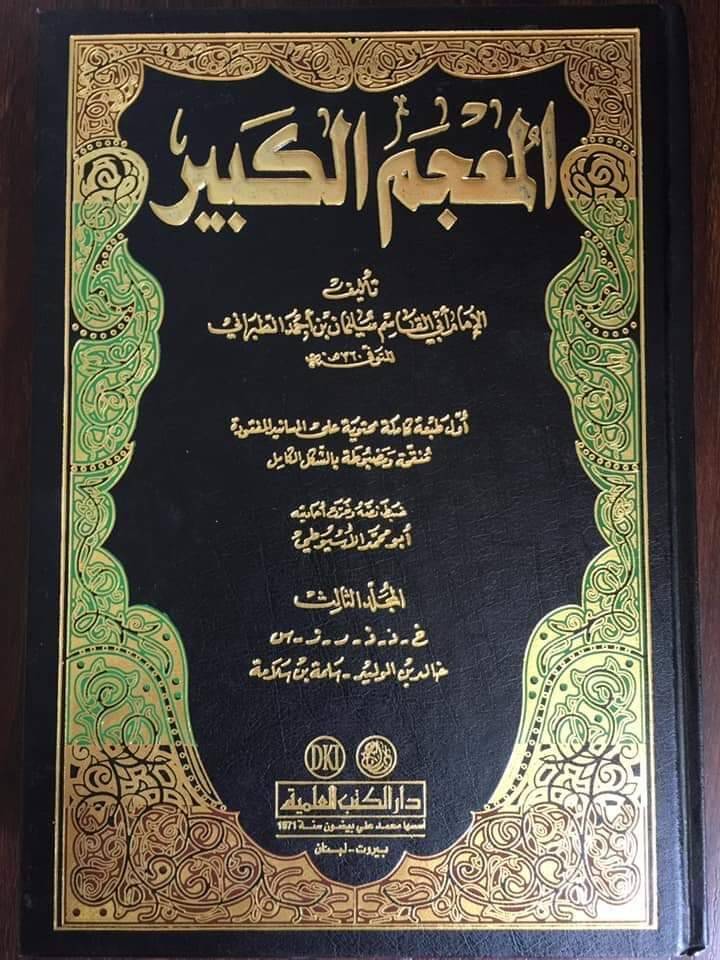 المعجم الكبير
تأليف
الإمام أبي القاسم سليمان بن أحمد الطبراني
المتوفى ٣٦٠ هـ
أول طبعة كاملة محتوية على المسانيد المفقودة
منقحة ومضبوطة بالشكل الكامل
ضبط نصه وخرج أحاديثه
أبو محمد الأسيوطي
المجلد الثالث
خ - د - ذ - ر - ز - س
خالد بن الوليد - سلمة بن سلامة
DKI
دار الكتب العلمية
أسسها محمد علي بيضون سنة 1971
بيروت - لبنان